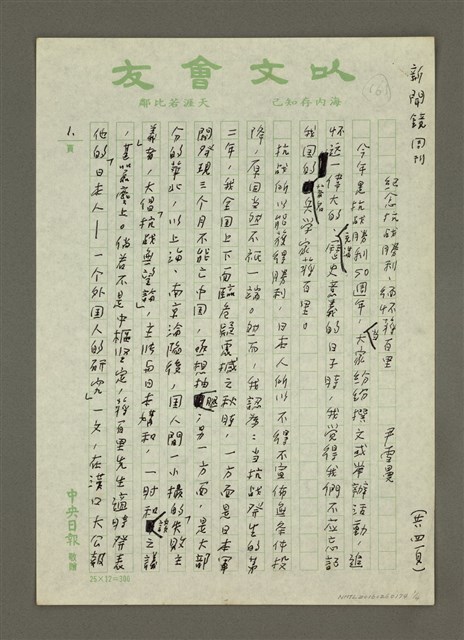 以文會友
海內存知己
天涯若比鄰
新聞鏡周刊
(6)
紀念抗战勝利,緬怀蒋百里
尹雪曼
(共四頁)
今年是抗战勝利50週年,当大家紛紛撰文或举辦活動,追
怀这一偉大的、充滿歷史意義的日子時,我觉得我們不应忘記
我国的著名兵学家蒋百里。
抗战所以能獲得勝利,日本人所以不得不宣佈無条件投
降,原因当然不祇一端。然而,我認為:当抗战發生的第
二年,我全国上下面臨危疑震撼之秋時,一方面是日本軍
閥發現三个月不能亡中国,亟想抽腿;另一方面,是大部
分的華北,以上海、南京淪陷後,国人間一小撮的「失敗主
義者」,大倡「抗战無望論」,主张与日本媾和,一時和談之議
,甚囂塵上。倘若不是中樞坚定,蒋百里先生適時發表
他的「日本人——一个外国人的研究」一文,在漢口大公報
1.頁
中央日報 敬贈
25×12=300